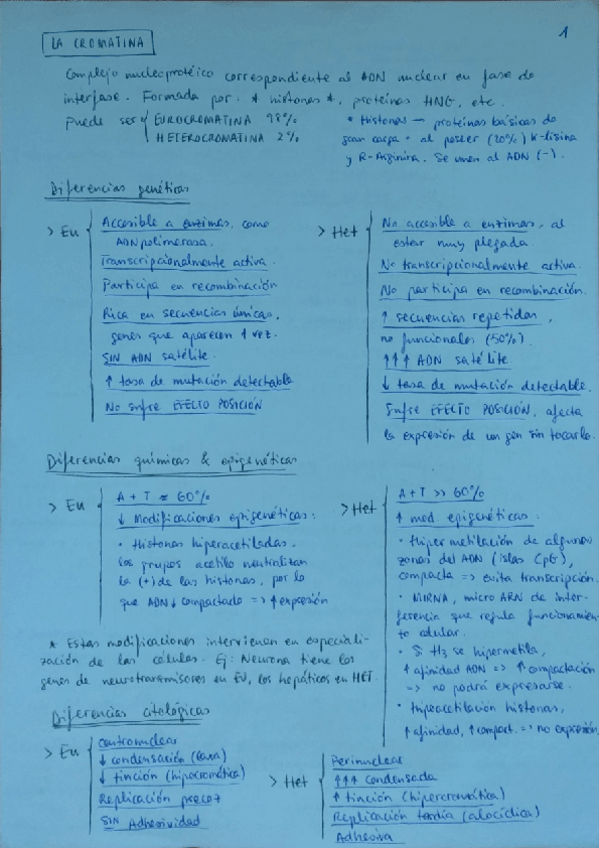 1
LA CROMATINA
Complejo nucleoprotéico correspondiente al ADN nuclear en fase de
interfase. Formada por: * histonas *, proteínas HNG, etc.
Puede ser { EUROCROMATINA 98%
HETEROCROMATINA 2%
* Histonas → proteínas básicas de
gran carga + al poseer (20%) K-lisina
y R-Arginina. Se unen al ADN (-).
Diferencias genéticas
> Eu
Accesible a enzimas, como
ADN polimerasa.
Transcripcionalmente activa.
Participa en recombinación
Rica en secuencias únicas,
genes que aparecen 1 vez.
SIN ADN satélite.
↑ tasa de mutación detectable
No sufre EFECTO POSICIÓN
> Het
No accesible a enzimas, al
estar muy plegada.
No transcripcionalmente activa.
No participa en recombinación.
↑ secuencias repetidas,
no funcionales (50%).
↑↑↑ ADN satélite.
↓ tasa de mutación detectable.
Sufre EFECTO POSICIÓN, afecta
la expresión de un gen sin tocarlo.
Diferencias químicas & epigenéticas
> Eu
A + T ≈ 60%
↓ Modificaciones epigenéticas:
· Histonas hiperacetiladas,
los grupos acetilo neutralizan
la (+) de las histonas, por lo
que ADN ↓ compactado => ↑ expresión
> Het
A + T >> 60%
↑ mod epigenéticas.
· Hipermetilación de algunas
zonas del ADN (islas CpG),
compacta => evita transcripción.
· MIRNA, micro ARN de inter-
ferencia que regula funcionamien-
to celular.
· Si H3 se hipermetila,
↑ afinidad ADN => ↑ compactación
=> no podrá expresarse.
· Hipoacetilación histonas,
↑ afinidad, ↑ compact. => no expresión.
* Estas modificaciones intervienen en especiali-
zación de las células. Ej: Neurona tiene los
genes de neurotransmisores en EU, los hepáticos en HET.
Diferencias citológicas
> Eu
Centronuclear
↓ condensación (laxa)
↓ tinción (hipocromática)
Replicación precoz
SIN Adhesividad
> Het
Perinuclear
↑↑↑ Condensada
↑ tinción (hipercromática)
Replicación tardía (alocíclica)
Adhesiva